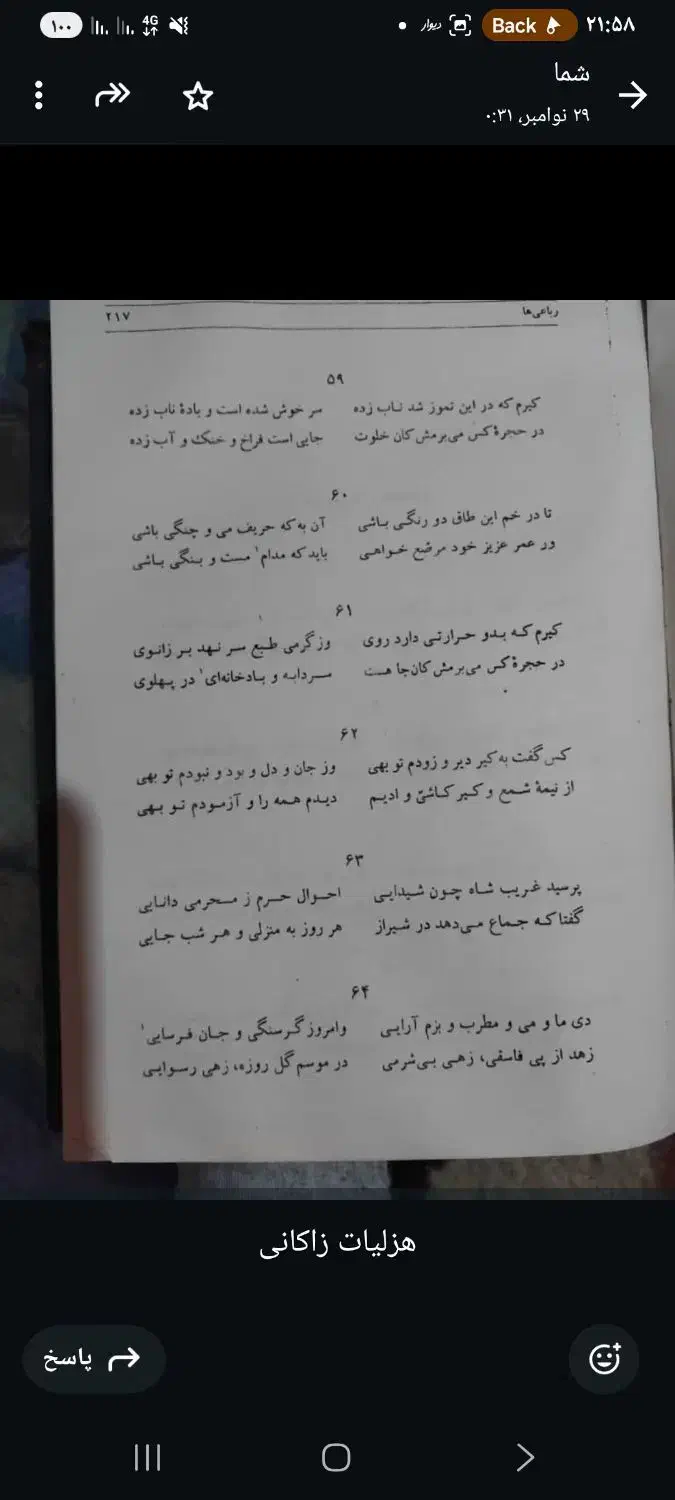 ۲۱:۵۸
Back
دیوار
4G
۱۰۰
شما
۲۹ نوامبر، ۰:۳۱
رباعی‌ها ۲۱۷
۵۹
کیرم که در این تموز شد ناب زده سر خوش شده است و بادهٔ ناب زده
در حجرهٔ کس می‌برمش کان خلوت جایی است فراخ و خنک و آب زده
۶۰
تا در خم این طاق دو رنگی باشی آن به که حریف می و چنگی باشی
ور عمر عزیز خود مرضع خواهی باید که مدام۱ مست و بنگی باشی
۶۱
کیرم که بدو حرارتی دارد روی وز گرمی طبع سر نهد بر زانوی
در حجرهٔ کس می‌برمش کان‌جا هست سردابه و بادخانه‌ای۱ در پهلوی
۶۲
کس گفت به کیر دیر و زودم تو بهی وز جان و دل و بود و نبودم تو بهی
از نیمهٔ شمع و کیر کاشیّ و ادیم دیدم همه را و آزمودم تو بهی
۶۳
پرسید غریب شاه چون شیدایی احوال حرم ز محرمی دانایی
گفتا که جماع می‌دهد در شیراز هر روز به منزلی و هر شب جایی
۶۴
دی ما و می و مطرب و بزم آرایی وامروز گرسنگی و جان فرسایی۱
زهد از پی فاسقی، زهی بی‌شرمی در موسم گل روزه، زهی رسوایی
هزلیات زاکانی
پاسخ